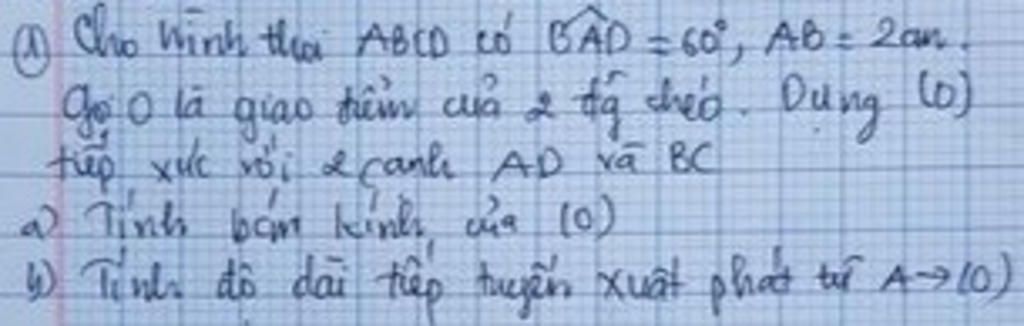 ① Cho hình thoi ABCD có BÂD = 60°, AB = 2cm.
Gọi O là giao điểm của 2 đg chéo. Dựng (O)
tiếp xúc với 2 cạnh AD và BC
a) Tính bán kính của (O)
b) Tính độ dài tiếp tuyến xuất phát từ A → (O)